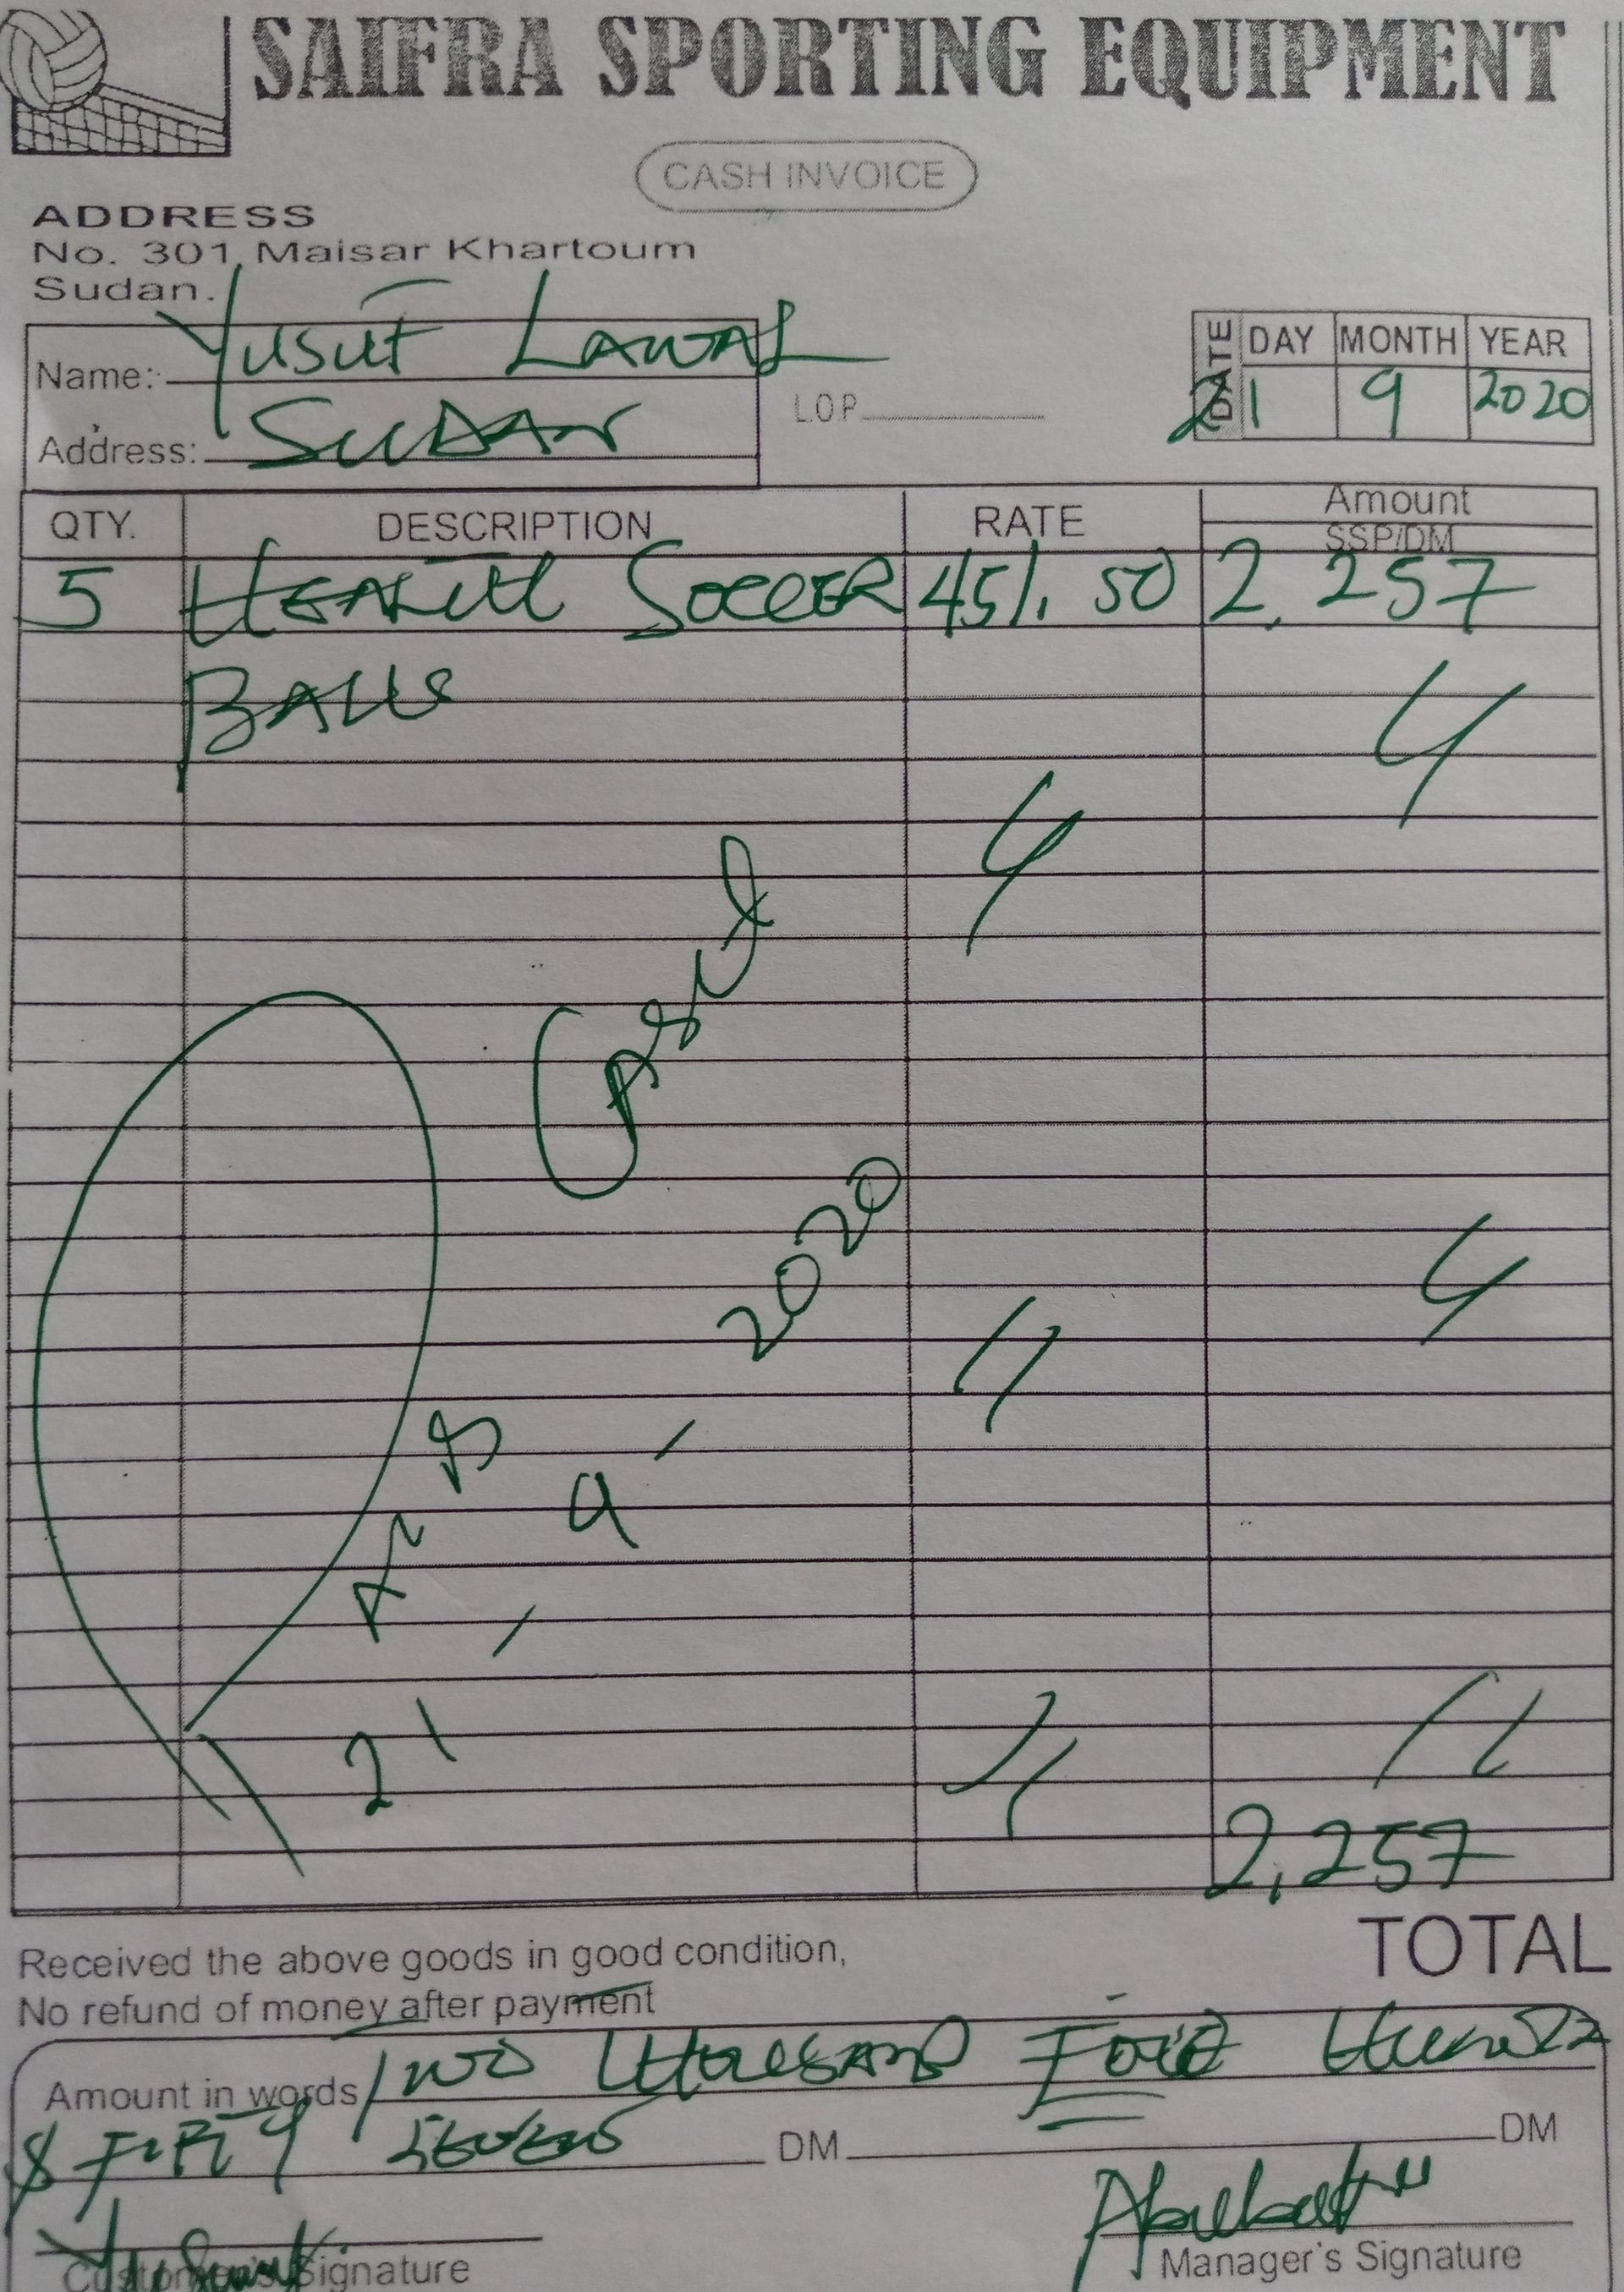 SAIFRA SPORTING EQUIPMENT
CASH INVOICE
ADDRESS
No. 301, Maisar Khartoum
Sudan.
Name: YUSUF LAWAL
Address: SUDAN
L.O.P
DATE DAY MONTH YEAR
21 9 2020
QTY. DESCRIPTION RATE Amount
SSP/DM
5 HEALTH SOCCER 451.50 2,257
BALLS
21 / 9 / 2020
2,257
TOTAL
Received the above goods in good condition,
No refund of money after payment
Amount in words TWO THOUSAND
& FIFTY SEVEN DM DM
Customer's Signature
Manager's Signature